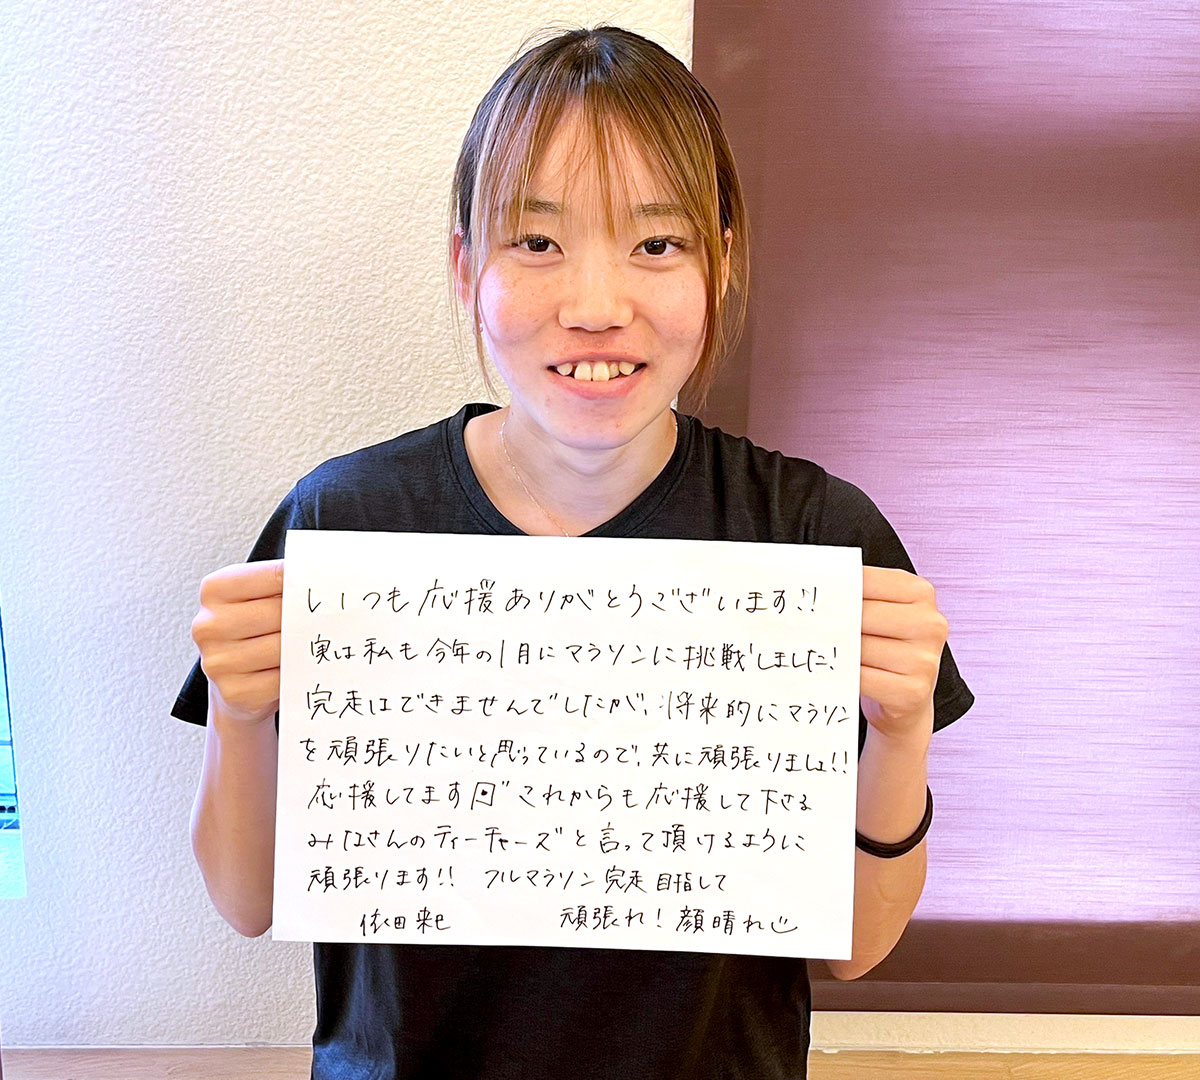 いつも応援ありがとうございます!!
実は私も今年の1月にマラソンに挑戦しました!
完走はできませんでしたが、将来的にマラソン
を頑張りたいと思っているので、共に頑張りましょ!!
応援してます これからも応援して下さる
みなさんのティーチャーズと言って頂けるように
頑張ります!! フルマラソン完走目指して
依田来巳 頑張れ!顔晴れ